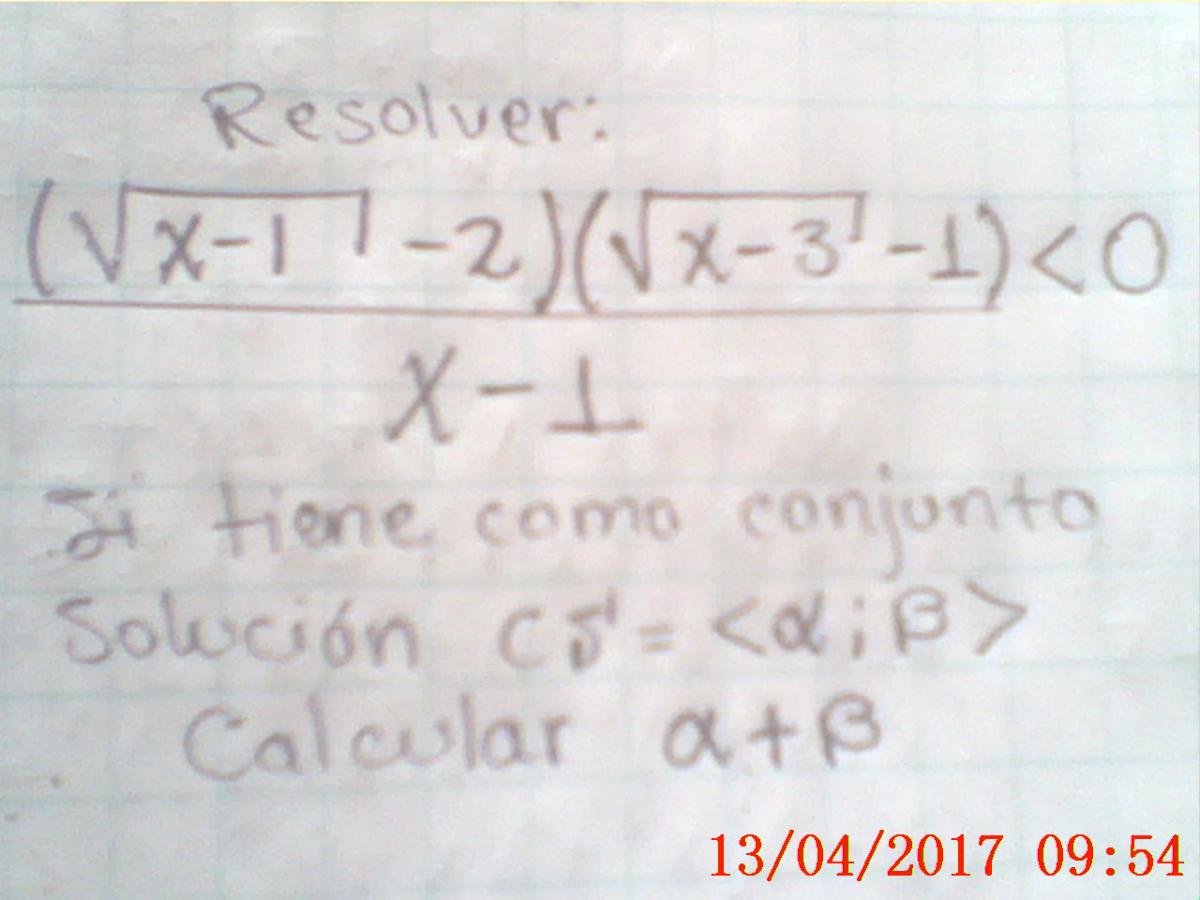 Resolver:
(√x-1 -2)(√x-3 -1) < 0
x-1
Si tiene como conjunto
Solución CS = <α; β>
Calcular α+β
13/04/2017 09:54